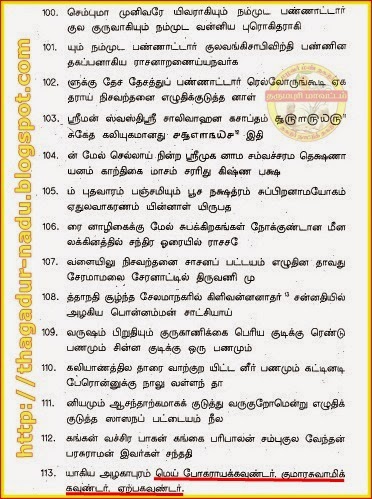 100. செம்புமா முனிவரே யிவராகியும் நம்முட பண்ணாட்டார்
குல குருவாகியும் நம்முட வன்னிய புரொகிதராகி
101. யும் நம்முட பண்ணாட்டார் குலவங்கிசாபிவிந்தி பண்ணின
தகப்பனாகிய ராசனாறனைய்யநவர்க
102. ளுக்கு தேச தேசத்துப் பண்ணாட்டார் ரெல்லொருங்கூடி ஏக
தராய் நிசவந்தனை எழுதிக்குடுத்த நாள்
103. ஸ்ரீமன் ஸ்வஸ்திஸ்ரீ சாலிவாஹன சகாப்தம்
சுகேத கலியுகமானது இதி
104. ன் மேல் செல்லாய் நின்ற ஸ்ரீமுக னாம சம்வச்சரம தெக்ஷணா
யனம் காற்திகை மாசம் சரரிது கிஷ்ண பக்ஷ
105. ம் புதவாரம் பஞ்சமியும் பூச நக்ஷத்ரம் சுப்பிறனாமயோகம்
ஏதுலவாகரணம் யின்னாள் யிருபத
106. ரை னாழிகைக்கு மேல் சுபக்கிறகங்கள் நோக்குண்டான மீன
லக்கினத்தில் சந்திர ஓரையில் ராசசபே
107. வளையிலு நிசவந்தனை சாசனப் பட்டயம் எழுதின தாவது
சேரமாமலை சேரனாட்டில் திருவணி மு
108. த்தாநதி சூழ்ந்த சேலமாநகரில் கிளிவள்னனாதர் 13 சன்னதியில்
அழகிய பொன்னம்மன் சாட்சியாய்
109. வருஷம் பிறுதியும் குருகாணிக்கை பெரிய குடிக்கு ரெண்டு
பணமும் சின்ன குடிக்கு ஒரு பணமும்
110. கலியாணத்தில தாரை வாற்குற யிட்ட னீர் பணமும் கட்டினடி
பேரொன்னுக்கு நாலு வள்ளந் தா
111. னியமும் ஆசந்தாற்கமாகக் குடுத்து வருகுறோமென்று எழுதிக்
குடுத்த ஸாஸநப் பட்டையம் நீல
112. கங்கள் வச்சிர பாகன் கங்கை பரிபாலன் சம்புகுல வேந்தன்
பரசுராமன் இவர்கள் சந்ததி
113. யாகிய அழகாபுரம் மெய் போகராயக்கவுண்டர், குமாரசுவாமிக்
கவுண்டர், ஏற்பகவுண்டர்.
http://thagadur-nadu.blogspot.com
தருமபுரி மாவட்டம்